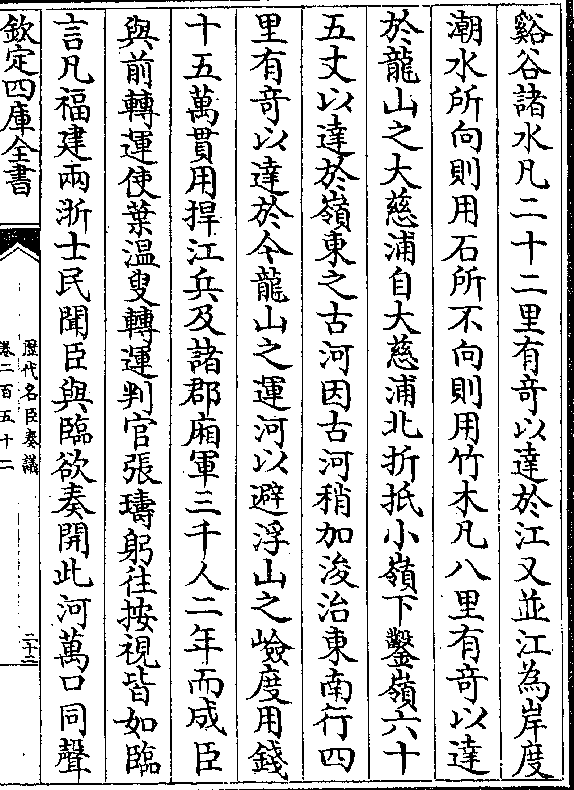 谿谷諸水凡二十二里有竒以達於江又並江為岸度
潮水所向則用石所不向則用竹木凡八里有竒以達
於龍山之大慈浦自大慈浦北折抵小嶺下鑿嶺六十
五丈以達於嶺東之古河因古河稍加浚治東南行四
里有竒以達於今龍山之運河以避浮山之嶮度用錢
十五萬貫用捍江兵及諸郡廂軍三千人二年而成臣
與前轉運使葉溫叟轉運判官張璹躬往按視皆如臨
言凡福建兩浙士民聞臣與臨欲奏開此河萬口同聲
欽定四庫全書
歷代名臣奏議
卷二百五十二
二十三